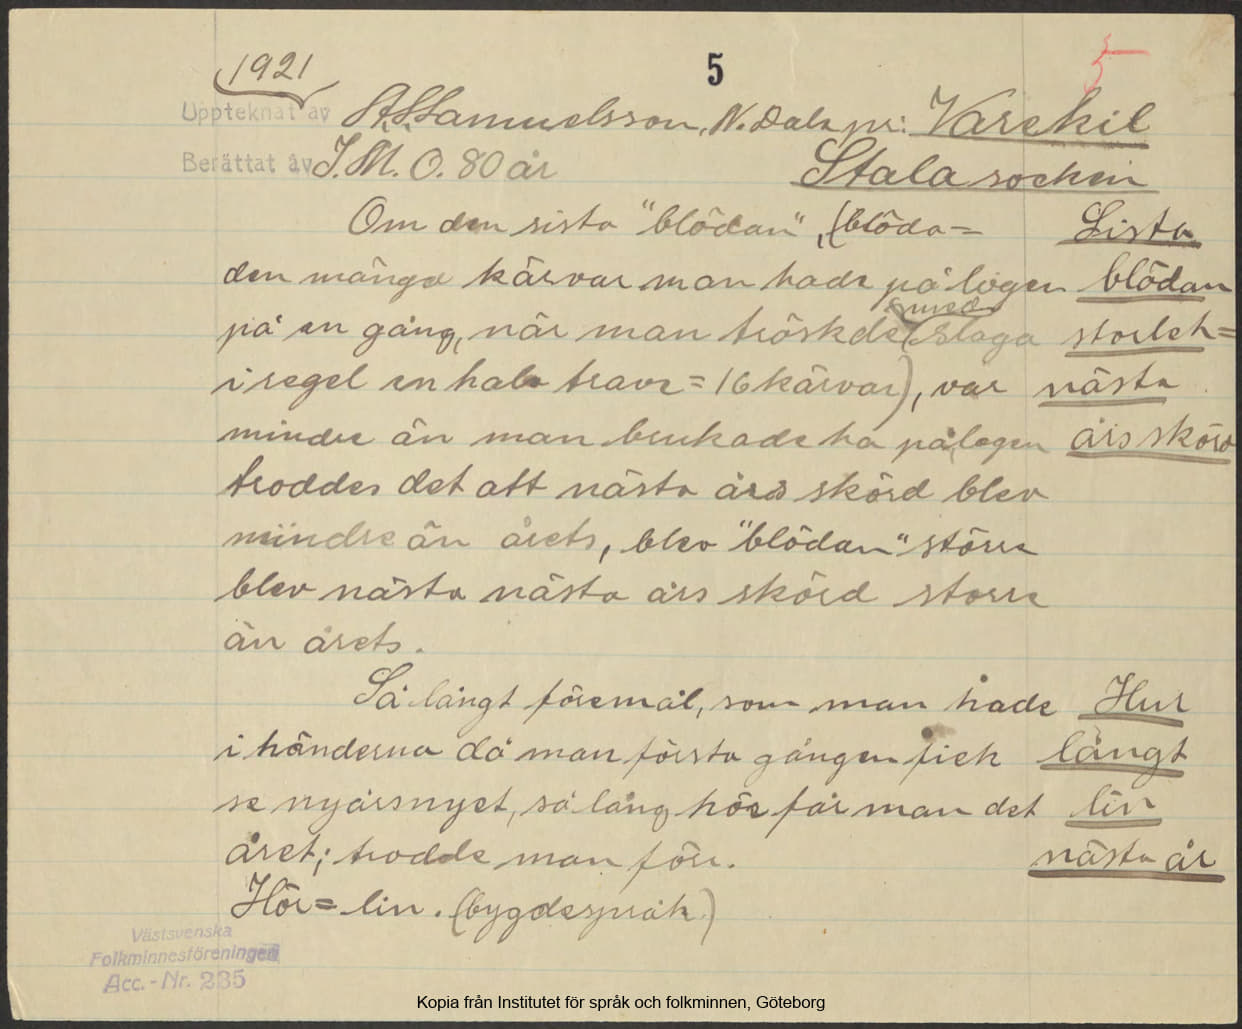 1921
5
5
Uppteknat av A. Samuelsson, N. Dala pr: Varekil
Berättat av J. M. O. 80 år Stala socken
Om den sista "blödan", (blöda=
den mängd kärvar man hade på logen
på en gång, när man tröskde med slaga
i regel en halv trave = 16 kärvar), var
mindre än man brukade ha på logen
troddes det att nästa års skörd blev
mindre än årets, blev "blödan" större
blev nästa nästa års skörd storre
än årets.
Sista
blödan
storlek=
nästa
års skörd
Så långt föremål, som man hade
i händerna då man första gången fick
se nyårsnyet, så lång hör får man det
året; trodde man förr.
Hör = lin. (bygdespråk)
Hur
långt
lin
nästa år
Västsvenska
Folkminnesföreningen
Acc. - Nr. 235
Kopia från Institutet för språk och folkminnen, Göteborg